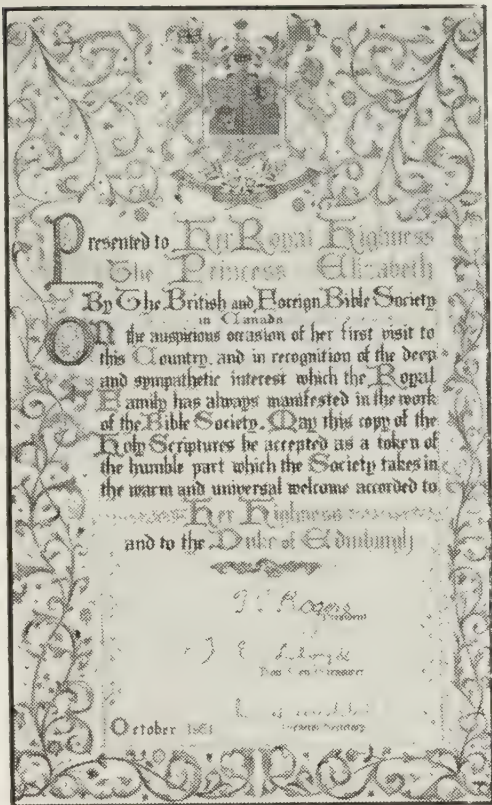 Presented to Her Royal Highness
The Princess Elizabeth
By The British and Foreign Bible Society
in Canada
On the auspicious occasion of her first visit to
this Country, and in recognition of the deep
and sympathetic interest which the Royal
Family has always manifested in the work
of the Bible Society. May this copy of the
Holy Scriptures be accepted as a token of
the humble part which the Society takes in
the warm and universal welcome accorded to
Her Highness
and to the Duke of Edinburgh
Rogers
President
J E
October 1951
Secretary